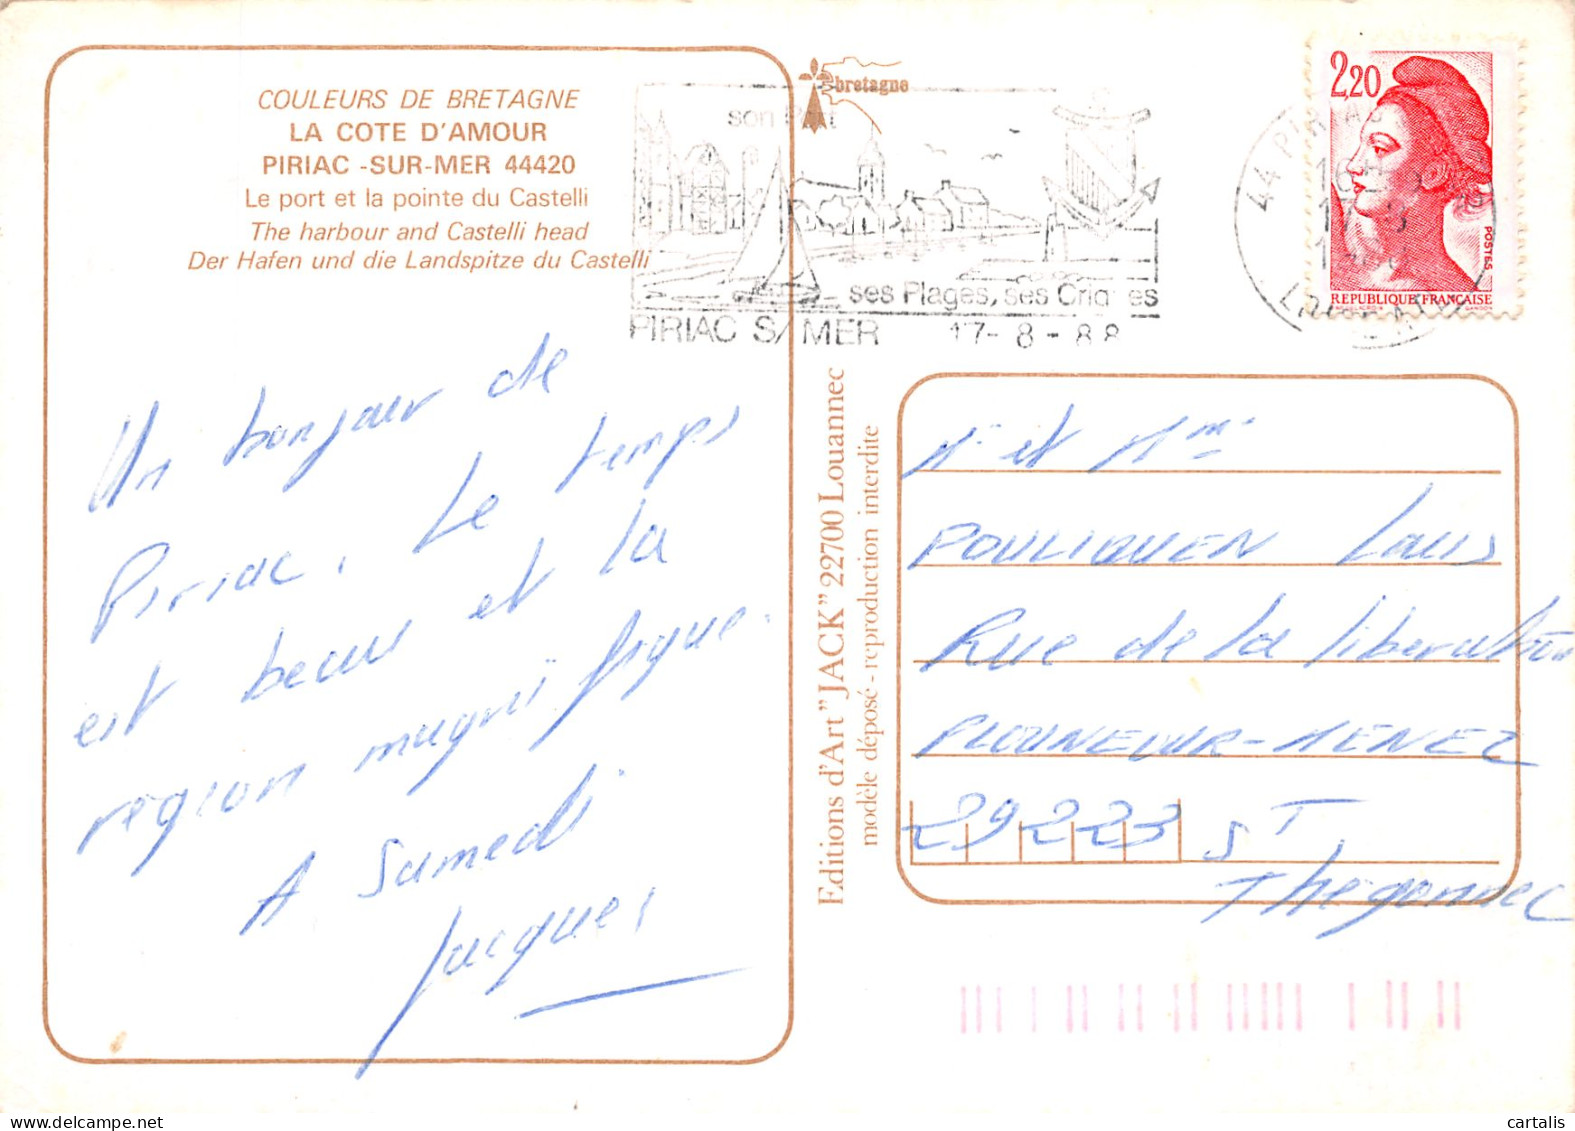 COULEURS DE BRETAGNE
LA COTE D'AMOUR
PIRIAC -SUR-MER 44420
Le port et la pointe du Castelli
The harbour and Castelli head
Der Hafen und die Landspitze du Castelli
bretagne
son Port
ses Plages, ses Criques
PIRIAC S/ MER 17-8-88
44 PIRIAC
2,20
POSTES
REPUBLIQUE FRANÇAISE
Un bonjour de
Piriac. Le temps
est beau et la
region magnifique.
A Samedi
Jacques
Editions d'Art "JACK" 22700 Louannec
modèle déposé - reproduction interdite
Mr et Mme
POULIQUEN Louis
Rue de la liberation
PLOUNEOUR-MENEZ
29223 ST
Thegonnec
cartalis